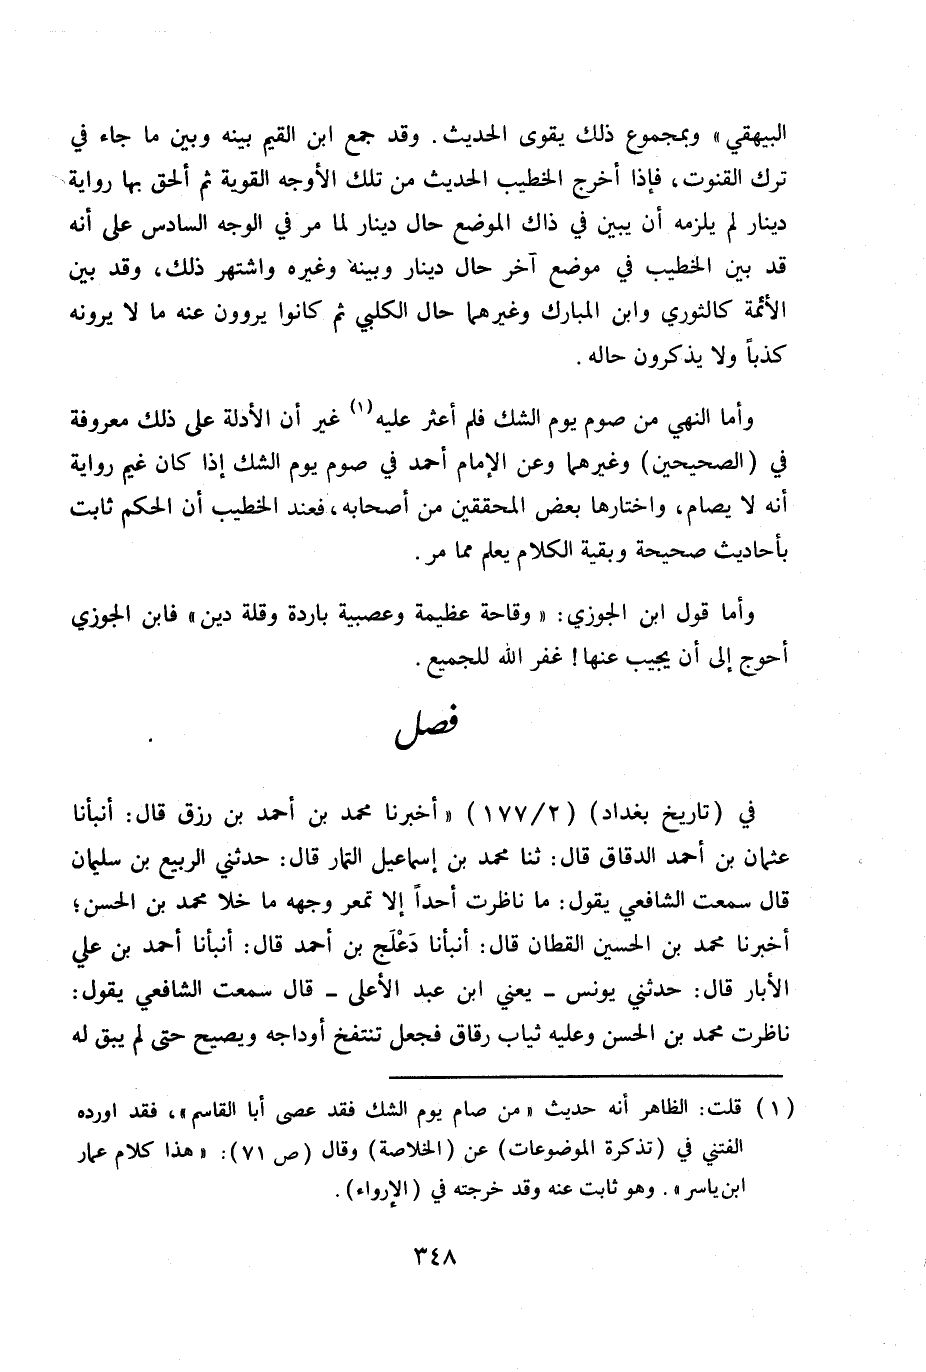 البيهقي » وبمجموع ذلك يقوى الحديث . وقد جمع ابن القيم بينه وبين ما جاء في
ترك القنوت ، فإذا أخرج الخطيب الحديث من تلك الأوجه القوية ثم ألحق بها رواية
دينار لم يلزمه أن يبين في ذاك الموضع حال دينار لما مر في الوجه السادس على أنه
قد بين الخطيب في موضع آخر حال دينار وبينه وغيره واشتهر ذلك ، وقد بين
الأئمة كالثوري وابن المبارك وغيرهما حال الكلبي ثم كانوا يروون عنه ما لا يرونه
كذباً ولا يذكرون حاله .
وأما النهي من صوم يوم الشك فلم أعثر عليه (١) غير أن الأدلة على ذلك معروفة
في ( الصحيحين ) وغيرهما وعن الإمام أحمد في صوم يوم الشك إذا كان غيم رواية
أنه لا يصام ، واختارها بعض المحققين من أصحابه ، فعند الخطيب أن الحكم ثابت
بأحاديث صحيحة وبقية الكلام يعلم مما مر .
وأما قول ابن الجوزي : « وقاحة عظيمة وعصبية باردة وقلة دين » فابن الجوزي
أحوج إلى أن يجيب عنها ! غفر الله للجميع .
فصل
في ( تاريخ بغداد ) ( ٢ / ١٧٧ ) « أخبرنا محمد بن أحمد بن رزق قال : أنبأنا
عثمان بن أحمد الدقاق قال : ثنا محمد بن إسماعيل التمار قال : حدثني الربيع بن سليمان
قال سمعت الشافعي يقول : ما ناظرت أحداً إلا تمعر وجهه ما خلا محمد بن الحسن ؛
أخبرنا محمد بن الحسين القطان قال : أنبأنا دَعْلَج بن أحمد قال : أنبأنا أحمد بن علي
الأبار قال : حدثني يونس - يعني ابن عبد الأعلى - قال سمعت الشافعي يقول :
ناظرت محمد بن الحسن وعليه ثياب رقاق فجعل تنتفخ أوداجه ويصيح حتى لم يبق له
( ١ ) قلت : الظاهر أنه حديث « من صام يوم الشك فقد عصى أبا القاسم » ، فقد اورده
الفتني في ( تذكرة الموضوعات ) عن ( الخلاصة ) وقال ( ص ٧١ ) : « هذا كلام عمار
ابن ياسر » . وهو ثابت عنه وقد خرجته في ( الإرواء ) .
٣٤٨